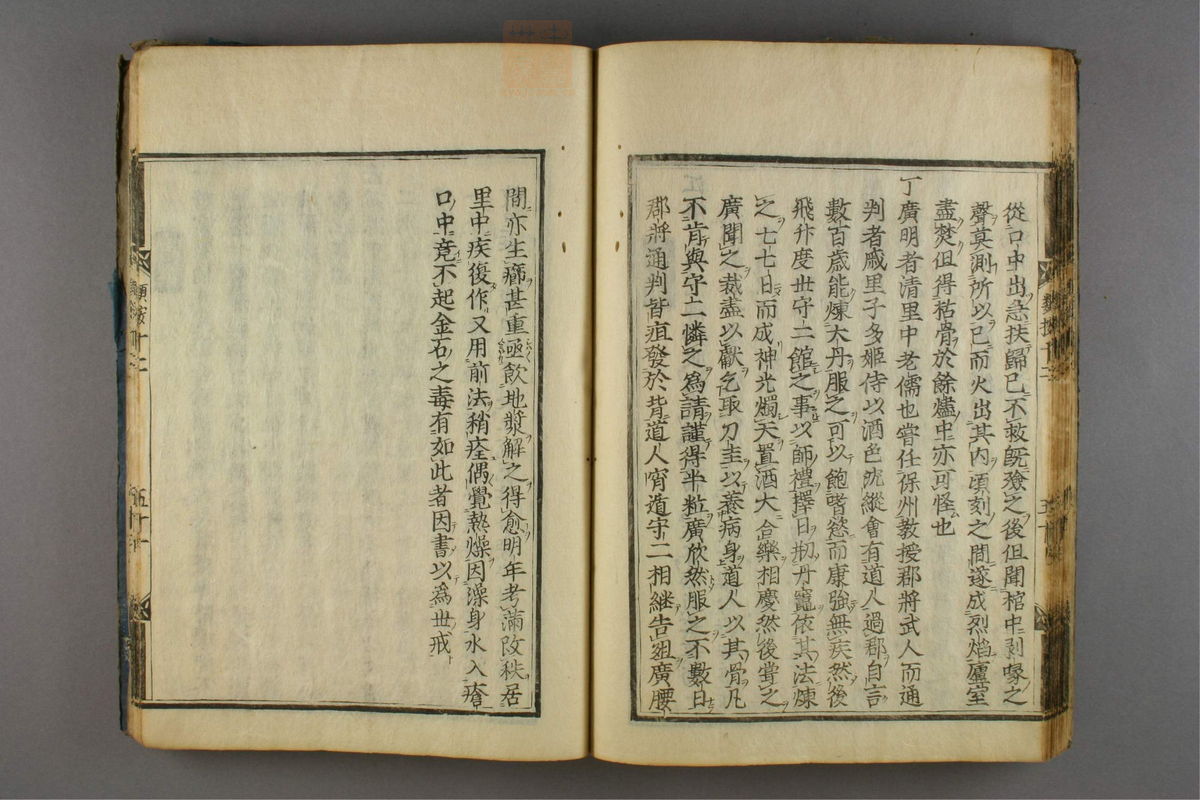 從口中出急扶歸已不救既殮之後但聞棺中剥喙之
聲莫測所以已而火出其内頃刻之間遂成烈焰廬室
盡焚但得枯骨於餘燼中亦可怪也
丁廣明者清里中老儒也嘗任保州教授郡將武人而通
判者戚里子多姬侍以酒色沈縱會有道人過郡自言
數百歳能煉大丹服之可以飽嗜慾而康強無疾然後
飛升度世守二館之事以師禮擇日剏丹竈依其法煉
之七七日而成神光燭天置酒大合樂相慶然後嘗之
廣聞之裁盡以獻乞取刀圭以養病身道人以其骨凡
不肯與守二憐之爲請謹得半粒廣欣然服之不數日
郡將通判皆疽發於背道人宵遁守二相継告殂廣腰
間亦生癤甚重亟飲地漿解之得愈明年考滿改秩居
里中疾復作又用前法稍痊偶覺熱燥因澡身水入瘡
口中竟不起金石之毒有如此者因書以爲世戒
類按十二
五十一